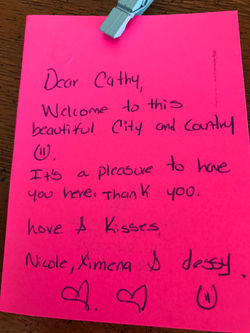 Dear Cathy,
Welcome to this
beautiful City and Country
It's a pleasure to have
you here. Thank you.
Love & Kisses,
Nicole, Ximena & dessy.